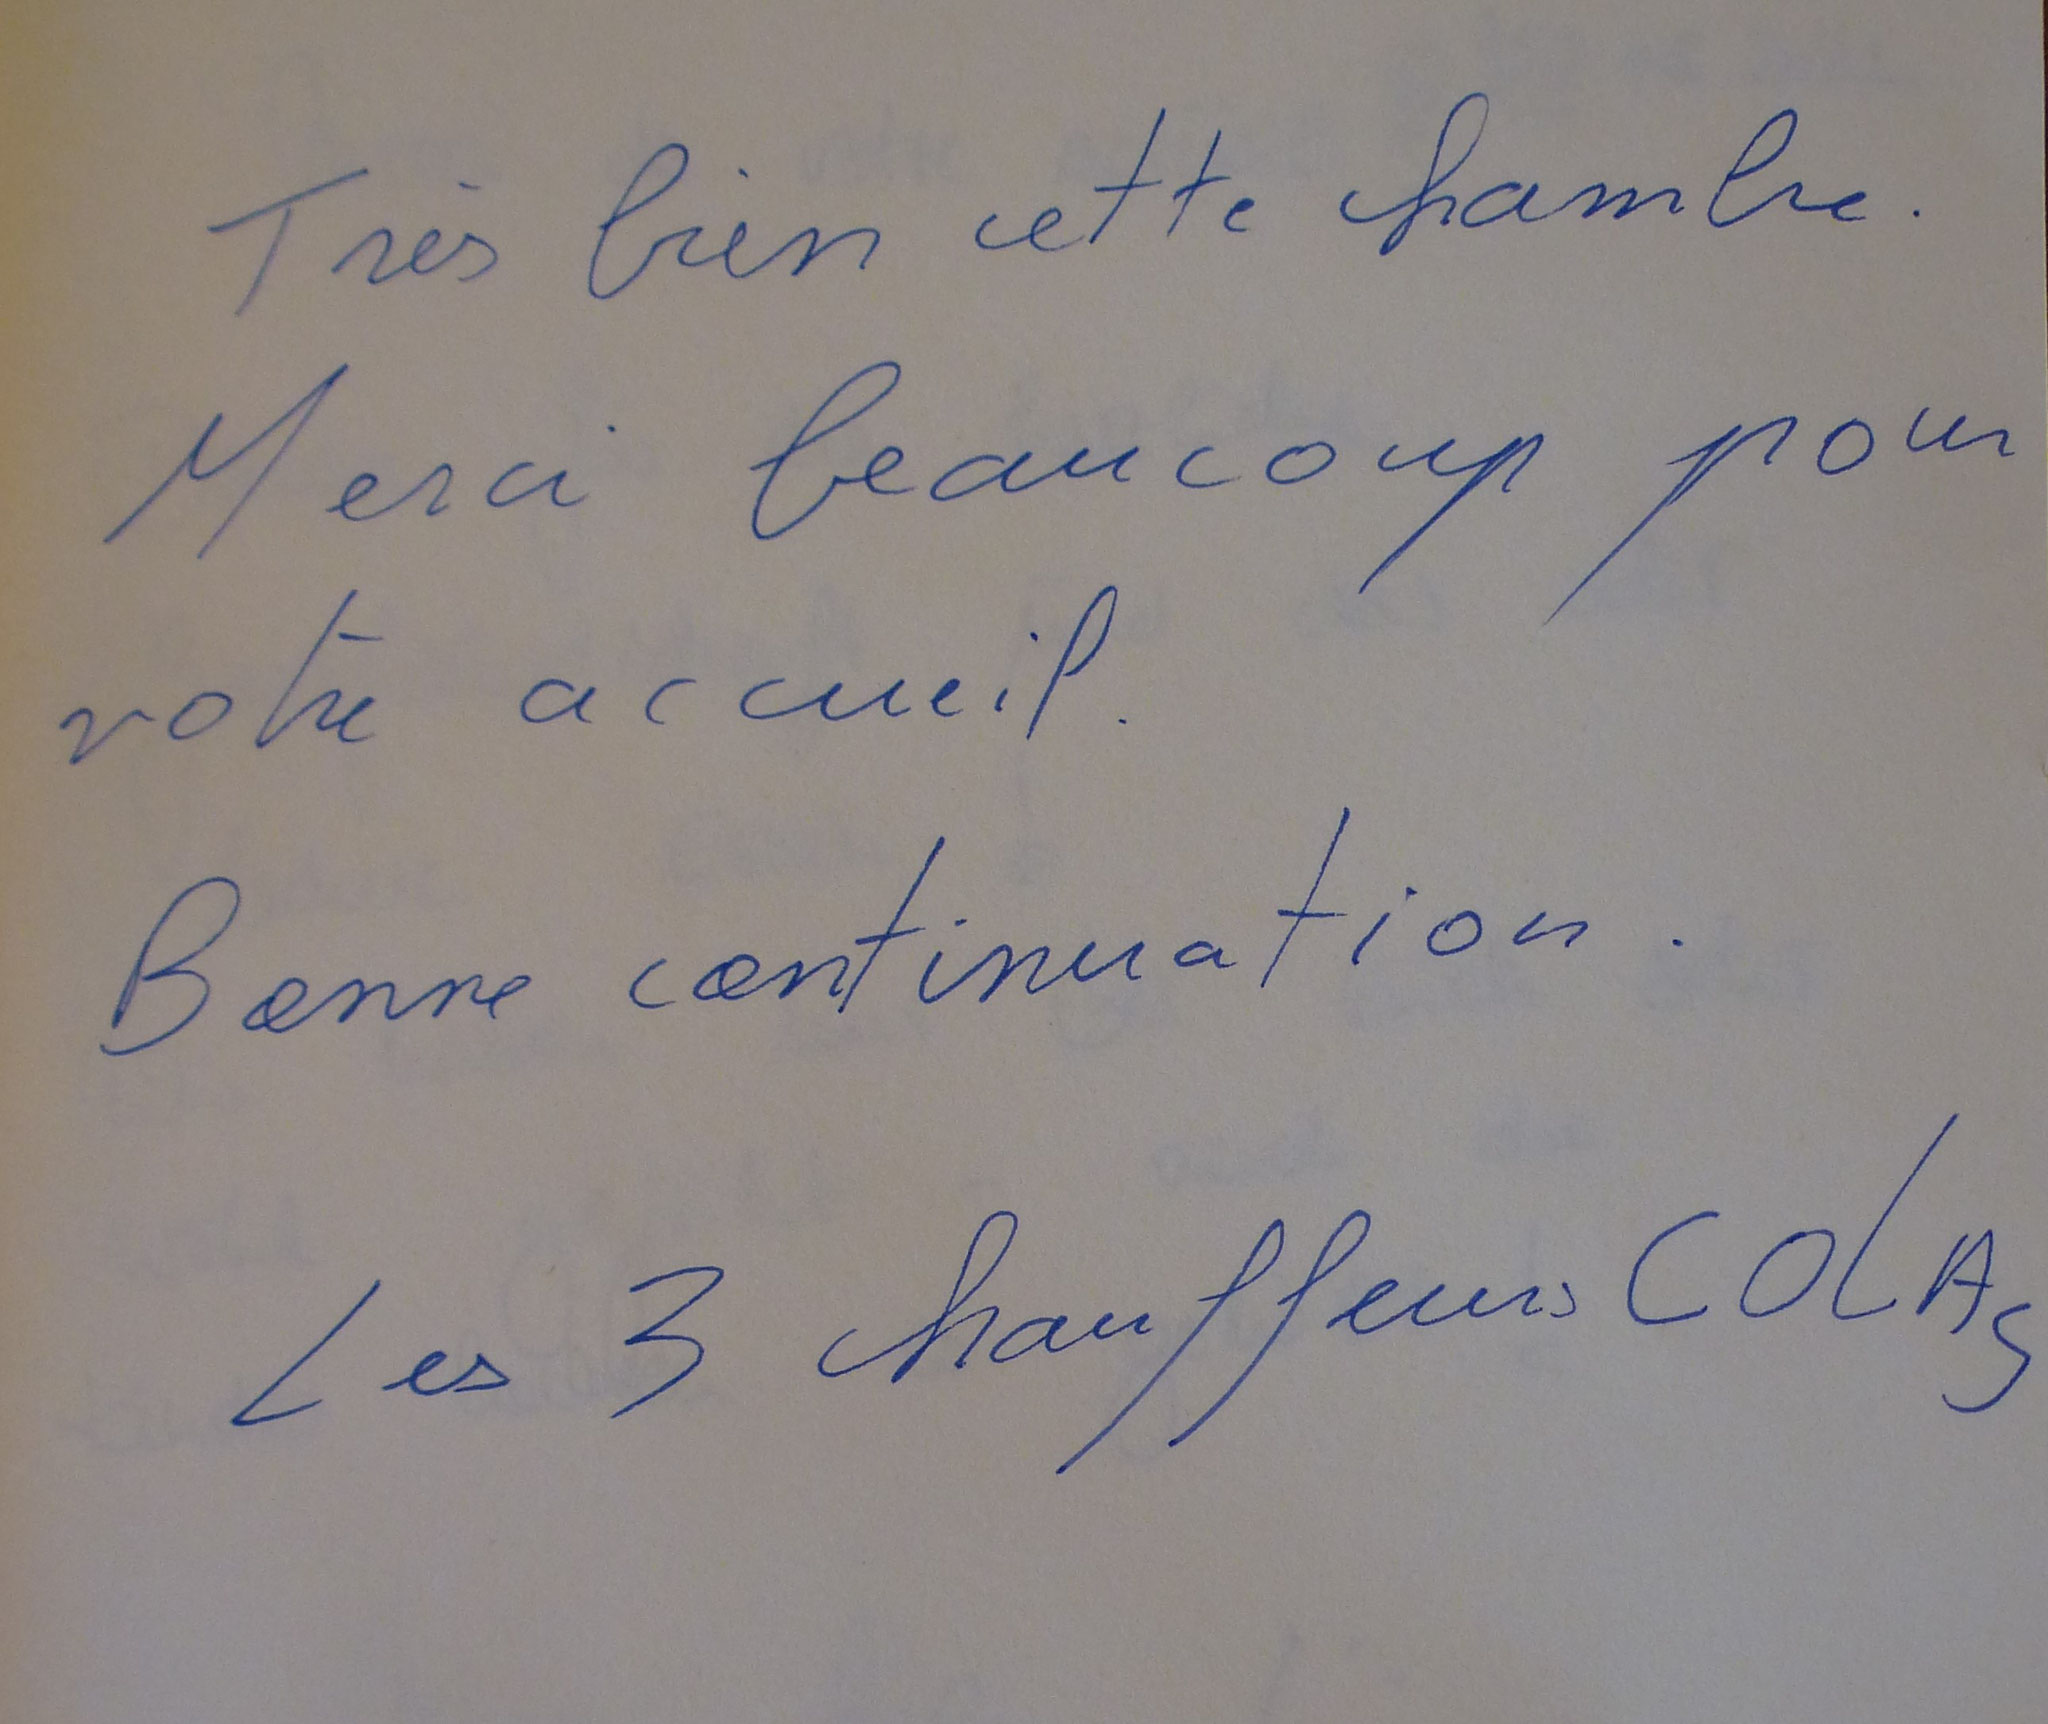 Très bien cette chambre.
Merci beaucoup pour
votre accueil.
Bonne continuation.
Les 3 chauffeurs COLAS